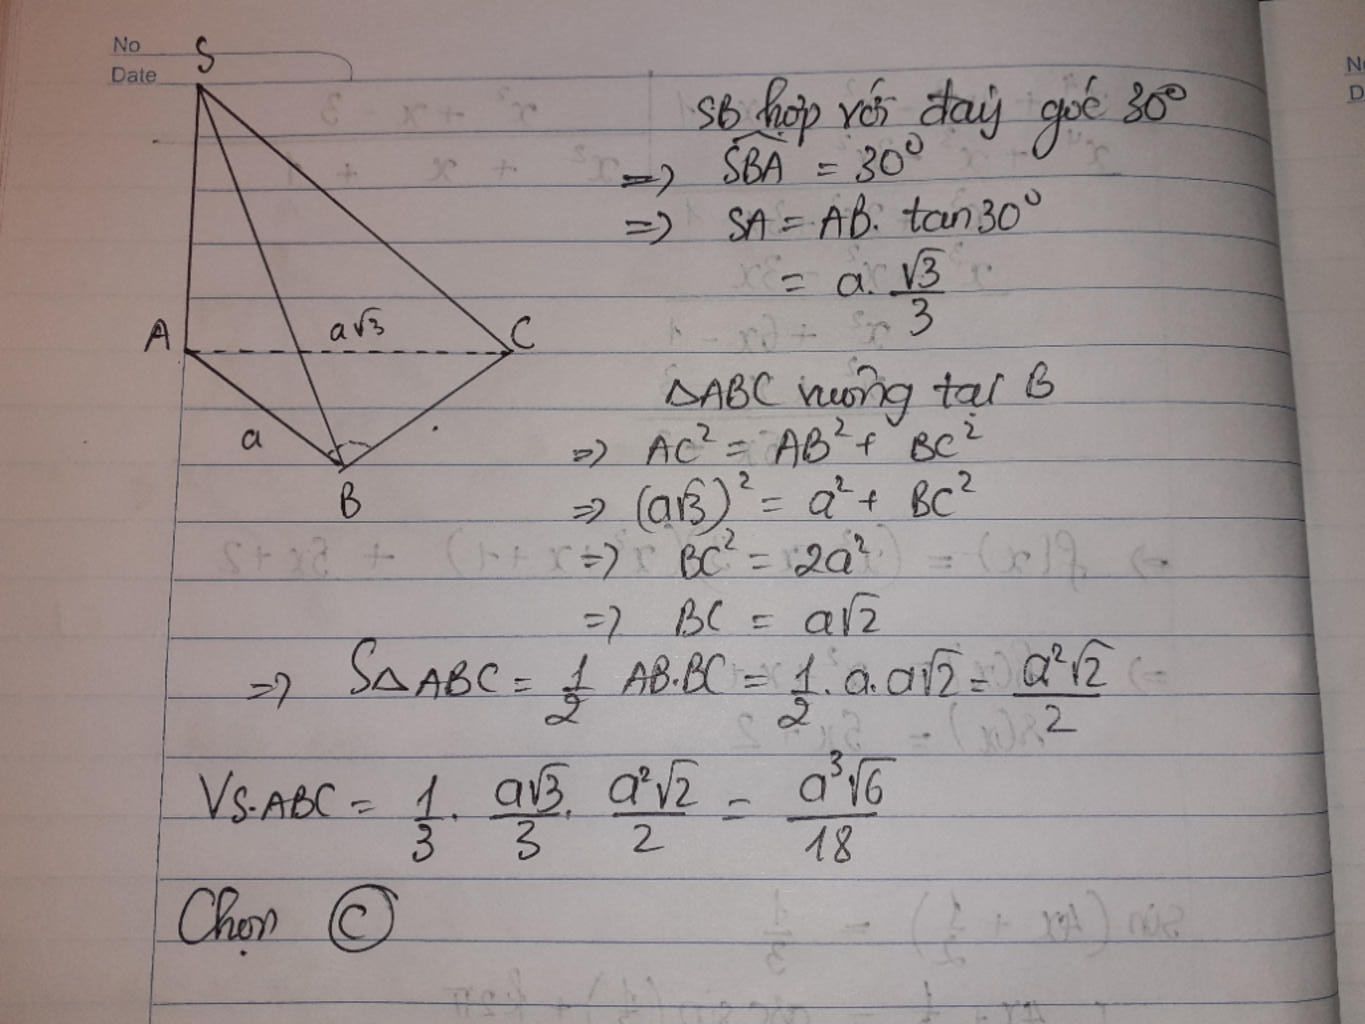 No
Date
S
SB hợp với đáy góc 30°
=> SBA = 30°
=> SA = AB. tan30°
= a. √3/3
A
a√3
C
a
B
ΔABC vuông tại B
=> AC² = AB² + BC²
=> (a√3)² = a² + BC²
=> BC² = 2a²
=> BC = a√2
=> SΔABC = 1/2 AB.BC = 1/2 . a. a√2 = a²√2/2
VS.ABC = 1/3 . a√3/3 . a²√2/2 = a³√6/18
Chọn C